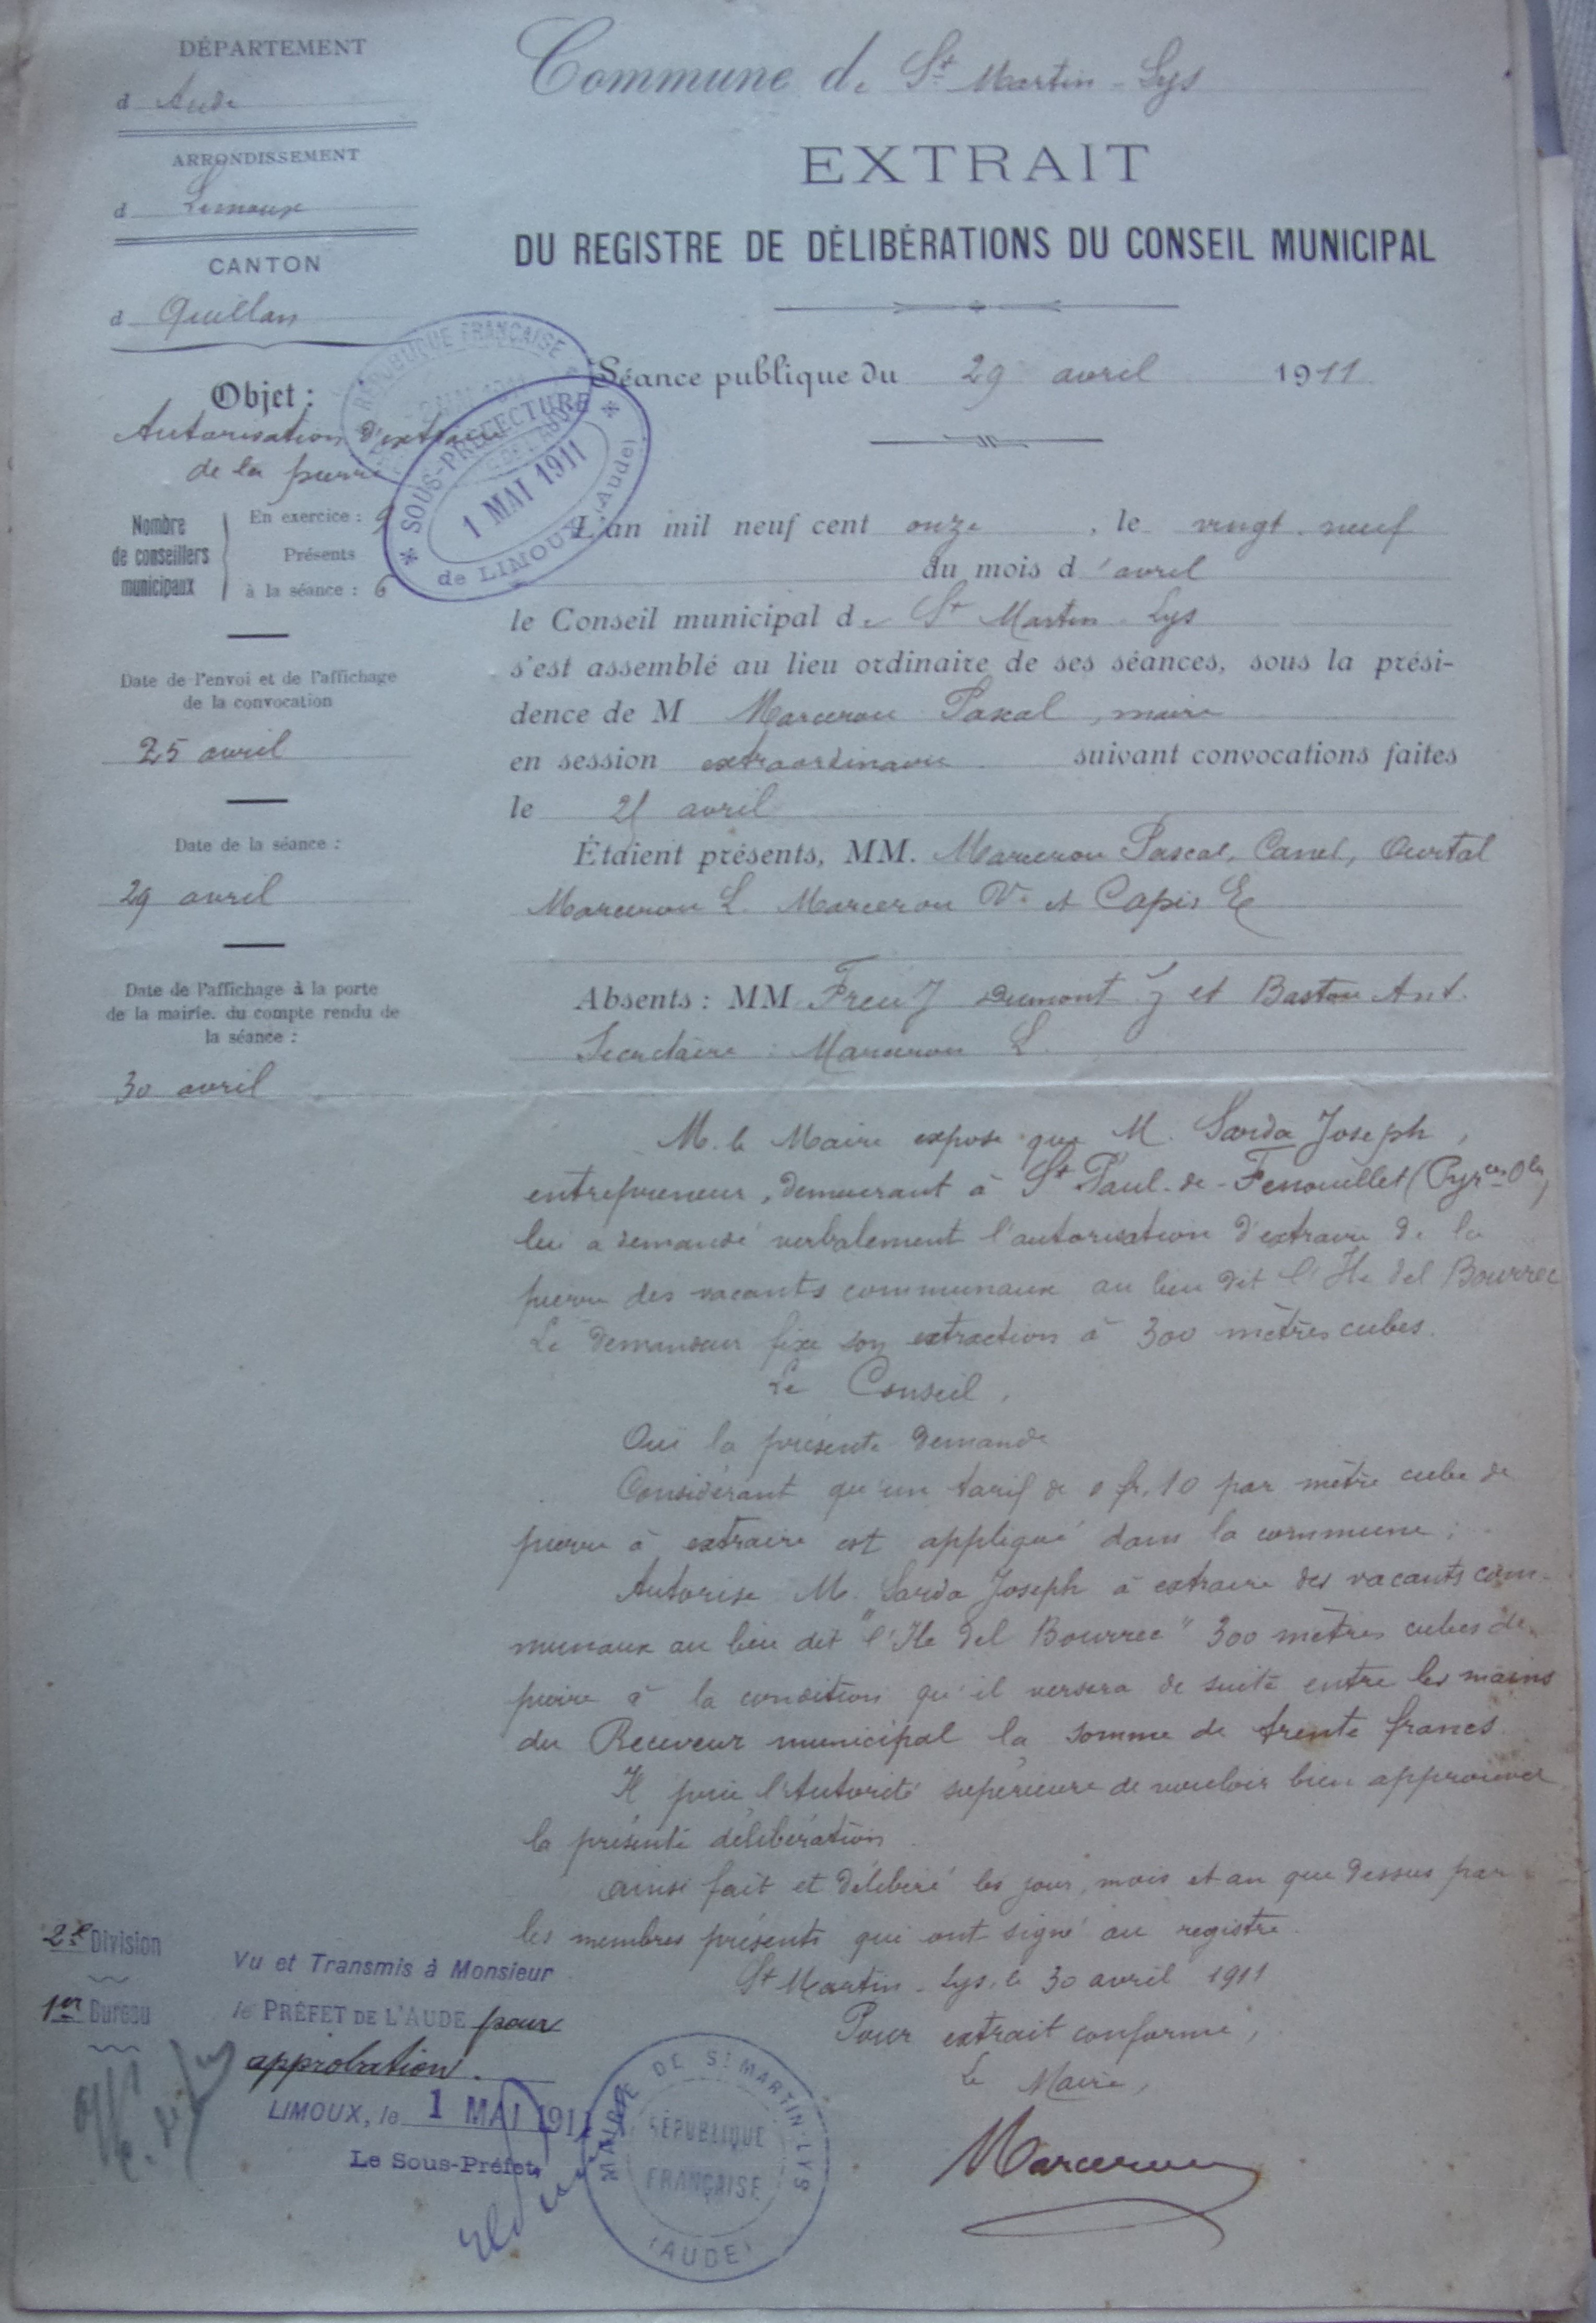 DÉPARTEMENT
d Aude
ARRONDISSEMENT
d Limoux
CANTON
d Quillan
Objet :
Autorisation d'extraire
de la pierre
Nombre
de conseillers
municipaux
En exercice : 9
Présents
à la séance : 6
Date de l'envoi et de l'affichage
de la convocation
25 avril
Date de la séance :
29 avril
Date de l'affichage à la porte
de la mairie, du compte rendu de
la séance :
30 avril
RÉPUBLIQUE FRANÇAISE
SOUS-PRÉFECTURE
1 MAI 1911
de LIMOUX (Aude)
Commune de St Martin-Lys
EXTRAIT
DU REGISTRE DE DÉLIBÉRATIONS DU CONSEIL MUNICIPAL
Séance publique du 29 avril 1911
L'an mil neuf cent onze, le vingt neuf
du mois d'avril
le Conseil municipal de St Martin-Lys
s'est assemblé au lieu ordinaire de ses séances, sous la prési-
dence de M Marcerou Pascal, maire
en session extraordinaire suivant convocations faites
le 25 avril
Étaient présents, MM. Marcerou Pascal, Canel, Ourtal
Marcerou L. Marcerou V. et Capis E
Absents : MM Freu J Dumont J et Bastou Ant.
Secrétaire : Marcerou L.
M. le Maire expose que M. Sarda Joseph,
entrepreneur, demeurant à St Paul-de-Fenouillet (Pyrées Oles)
lui a demandé verbalement l'autorisation d'extraire de la
pierre des vacants communaux au lieu dit l'Ile del Bourrec
Le demandeur fixe son extraction à 300 mètres cubes.
Le Conseil,
Ouï la présente demande
Considérant qu'un tarif de 0 fr. 10 par mètre cube de
pierre à extraire est appliqué dans la commune ;
Autorise M. Sarda Joseph à extraire des vacants com-
munaux au lieu dit "l'Ile del Bourrec" 300 mètres cubes de
pierre à la condition qu'il versera de suite entre les mains
du Receveur municipal la somme de trente francs.
Il prie l'Autorité supérieure de vouloir bien approuver
la présente délibération.
Ainsi fait et délibéré les jour, mois et an que dessus par
les membres présents qui ont signé au registre.
St Martin-Lys, le 30 avril 1911
Pour extrait conforme,
Le Maire,
Marcerou
2e Division
1er Bureau
Vu et Transmis à Monsieur
le PRÉFET DE L'AUDE pour
approbation.
LIMOUX, le 1 MAI 1911
Le Sous-Préfet,
MAIRIE DE St MARTIN-LYS
RÉPUBLIQUE
FRANÇAISE
(AUDE)